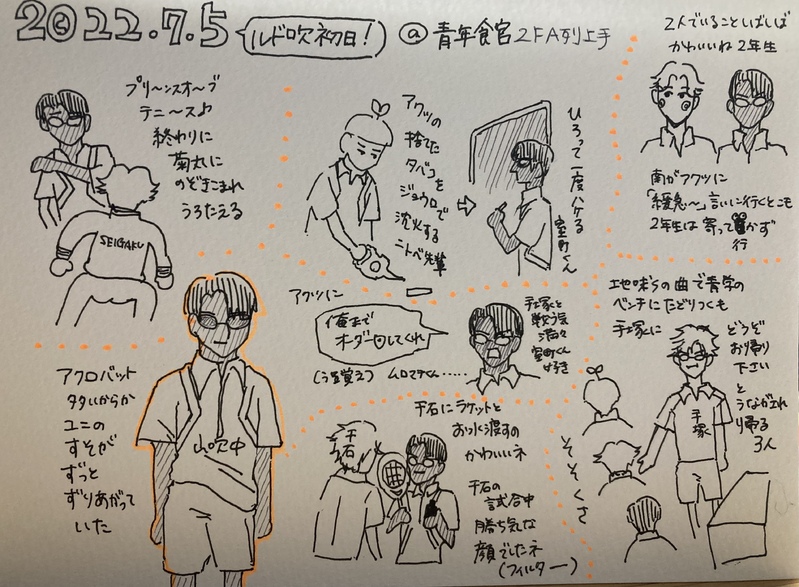 2022.7.5
ルド吹初日!
@青年食官2FA列上手
プリ〜ンスオ〜ブ
テニ〜ス♪
終わりに
菊丸に
のぞきこまれ
うろたえる
SEIGAKU
アクツの
捨てた
タバコを
ジョウロで
沈火する
ニトベ先輩
ひろって一度ハケる
室町くん
2人でいることしばしば
かわいいね2年生
南がアクツに
「緩急〜」言いに行くとこも
2年生は寄って
行かず
アクロバット
多いからか
ユニの
すそが
ずっと
ずりあがって
いた
山吹中
アクツに
俺まで
オーダーしてくれ
(うろ覚え)
ムロマチくん……
手塚と
戦う気
満々
室町くん
好き
千石にラケットと
おつく渡すの
かわいいネ
千石
千石の
試合中
勝ち気な
顔でしたネ
(フィルター)
エピローグの曲で青学の
ベンチにたどりつくも
手塚に
どうぞ
お帰り
下さい
と
うながされ
帰る
3人
手塚
そそくさ